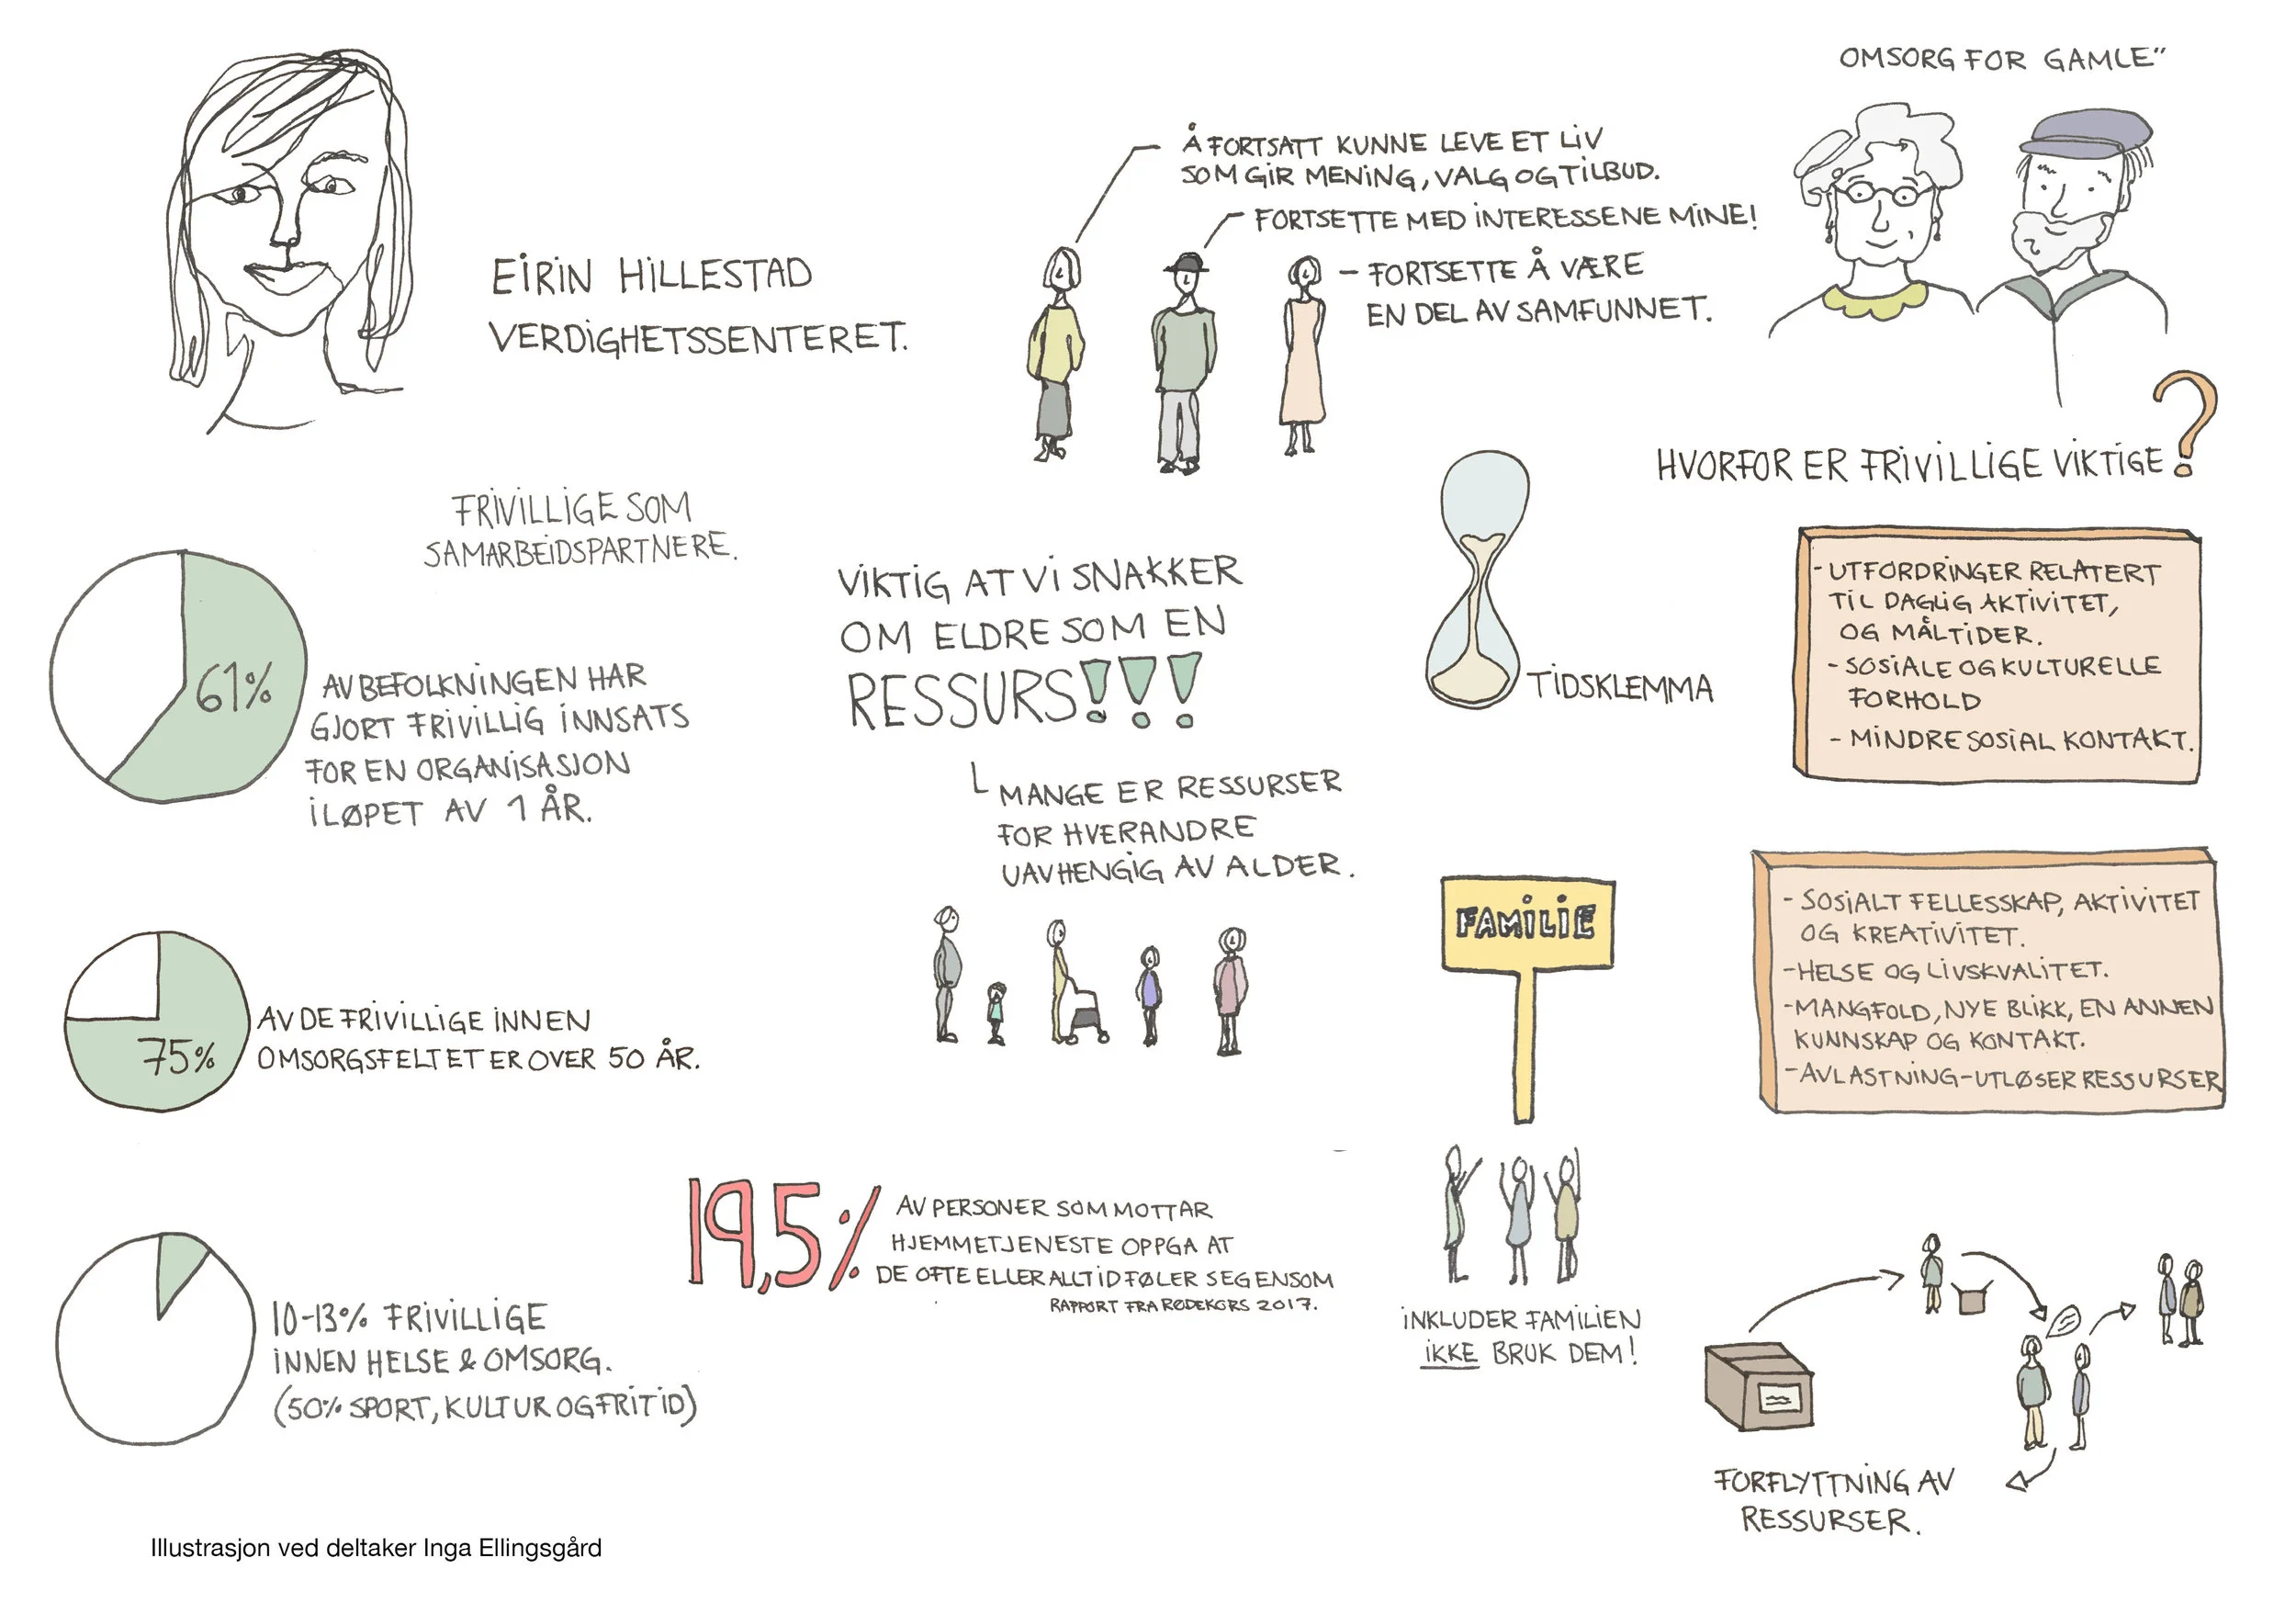 EIRIN HILLESTAD
VERDIGHETSSENTERET.
Å FORTSATT KUNNE LEVE ET LIV
SOM GIR MENING, VALG OG TILBUD.
FORTSETTE MED INTERESSENE MINE!
- FORTSETTE Å VÆRE
EN DEL AV SAMFUNNET.
OMSORG FOR GAMLE"
HVORFOR ER FRIVILLIGE VIKTIGE?
FRIVILLIGE SOM
SAMARBEIDSPARTNERE.
61%
AV BEFOLKNINGEN HAR
GJORT FRIVILLIG INNSATS
FOR EN ORGANISASJON
I LØPET AV 1 ÅR.
75%
AV DE FRIVILLIGE INNEN
OMSORGSFELTET ER OVER 50 ÅR.
10-13% FRIVILLIGE
INNEN HELSE & OMSORG.
(50% SPORT, KULTUR OG FRITID)
VIKTIG AT VI SNAKKER
OM ELDRE SOM EN
RESSURS!!!
MANGE ER RESSURSER
FOR HVERANDRE
UAVHENGIG AV ALDER.
19,5%
AV PERSONER SOM MOTTAR
HJEMMETJENESTE OPPGA AT
DE OFTE ELLER ALLTID FØLER SEG ENSOM
RAPPORT FRA RØDEKORS 2017.
TIDSKLEMMA
FAMILIE
INKLUDER FAMILIEN
IKKE BRUK DEM!
- UTFORDRINGER RELATERT
TIL DAGLIG AKTIVITET,
OG MÅLTIDER.
- SOSIALE OG KULTURELLE
FORHOLD
- MINDRE SOSIAL KONTAKT.
- SOSIALT FELLESSKAP, AKTIVITET
OG KREATIVITET.
- HELSE OG LIVSKVALITET.
- MANGFOLD, NYE BLIKK, EN ANNEN
KUNNSKAP OG KONTAKT.
- AVLASTNING - UTLØSER RESSURSER
FORFLYTTNING AV
RESSURSER.
Illustrasjon ved deltaker Inga Ellingsgård